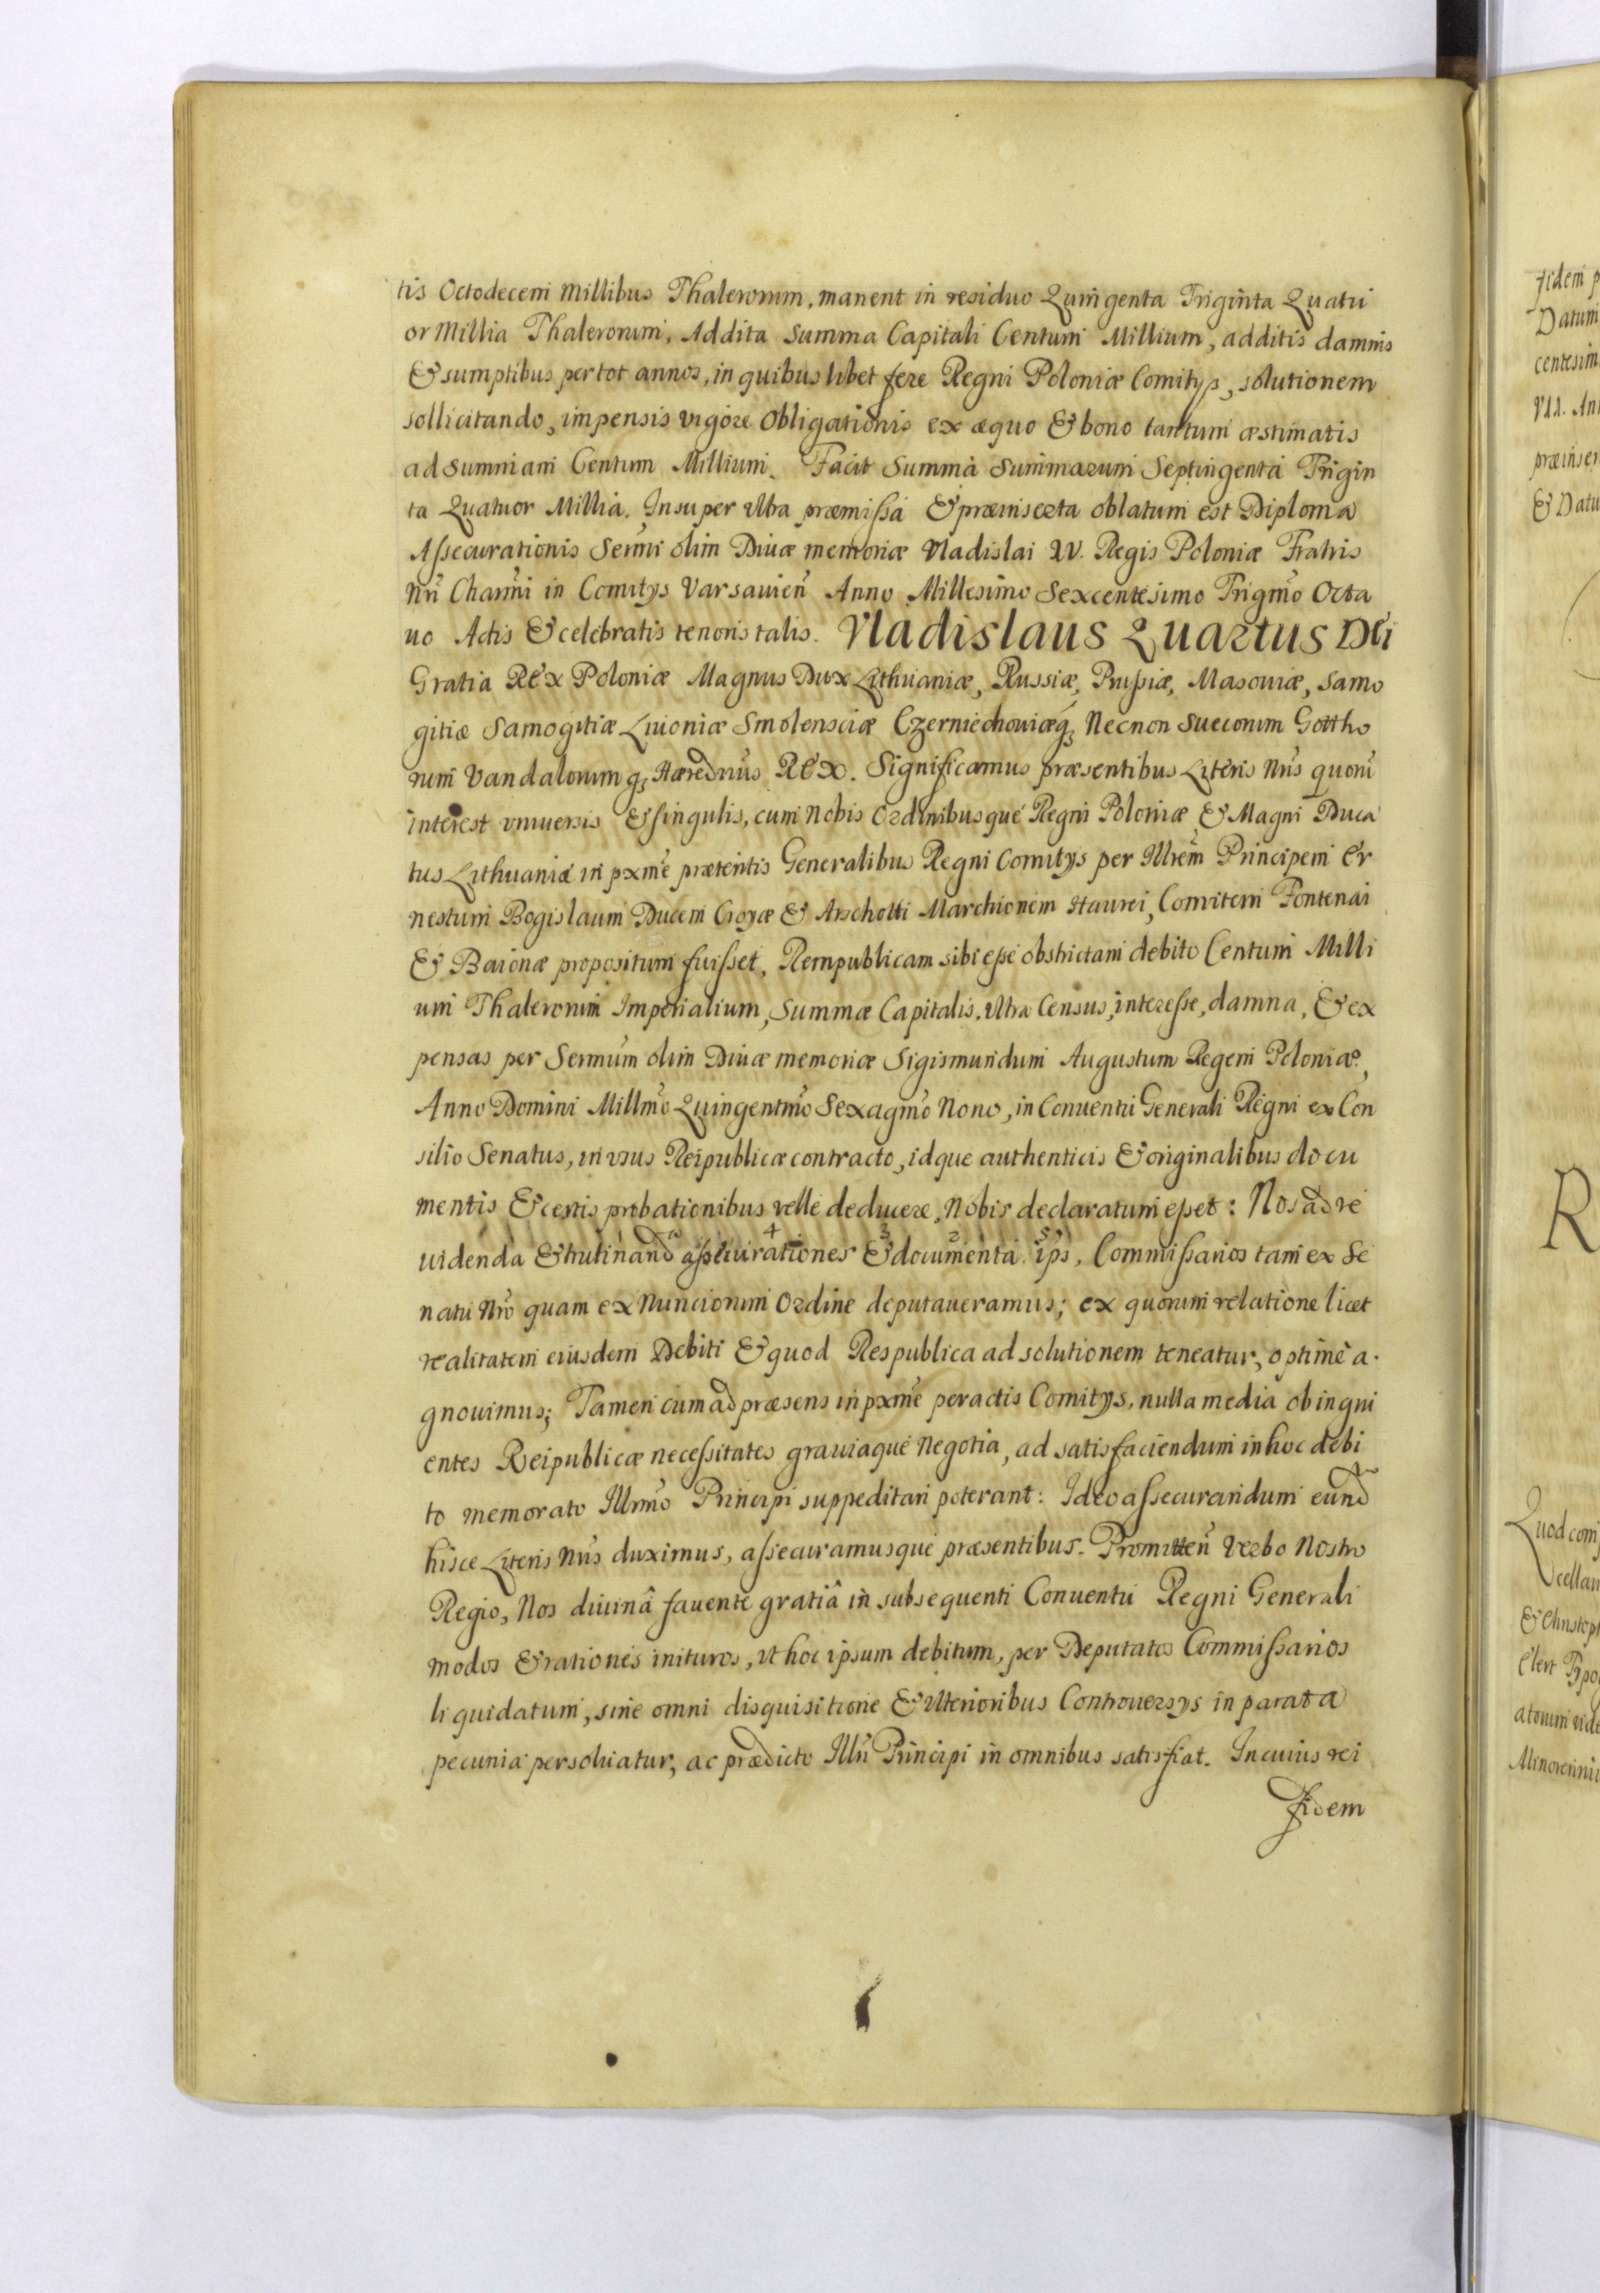 tis Octodecem Millibus Thalerorum, manent in residuo Quingenta Triginta Quatu
or Millia Thalerorum, Addita Summa Capitali Centum Millium, additis damnis
& sumptibus per tot annos, in quibus libet fere Regni Poloniæ Comitys, solutionem
sollicitando, impensis vigore Obligationis ex æquo & bono tantum æstimatis
ad Summam Centum Millium. Facit Summa Summarum Septingenta Trigin
ta Quatuor Millia. Insuper Ultra præmissa & præinserta oblatum est Diploma
Assecurationis Sermi olim Divæ memoriæ Vladislai IV. Regis Poloniæ Fratris
Nri Charmi in Comitys Varsavien Anno Millesimo Sexcentesimo Trigmo Octa
uo Actis & celebratis tenoris talis. Vladislaus Quartus Dei
Gratia Rex Poloniæ Magnus Dux Lithuaniæ, Russiæ, Prussiæ, Masouiæ, Samo
gitiæ Samogitiæ Liuoniæ Smolensciæ Czerniechouiæq; Necnon Suecorum Gottho
rum Vandalorumq; Hæredrius Rex. Significamus præsentibus Literis Nris quorum
interest vniuersis & singulis, cum Nobis Ordinibusque Regni Poloniæ & Magni Duca
tus Lithuaniæ in pxme præteritis Generalibus Regni Comitys per Illrem Principem Er
nestum Bogislaum Ducem Croyæ & Arschotti Marchionem Haurei, Comitem Fontenai
& Baionæ propositum fuisset, Rempublicam sibi esse obstrictam debito Centum Milli
um Thalerorum Imperialium, Summæ Capitalis, Ultra Census, interesse, damna, & ex
pensas per Sermum olim Divæ memoriæ Sigismundum Augustum Regem Poloniæ,
Anno Domini Millmo Quingentmo Sexagmo Nono, in Conuentu Generali Regni ex Con
silio Senatus, in vsus Reipublicæ contracto, idque authenticis & originalibus docu
mentis & certis probationibus velle deducere, Nobis declaratum esset: Nos ad re
uidenda & trutinand assecurationes & documenta ips, Commissarios tam ex Se
natu Nro quam ex Nunciorum Ordine deputaueramus; ex quorum relatione licet
realitatem eiusdem Debiti & quod Respublica ad solutionem teneatur, optimè a.
gnouimus; Tamen cum ad præsens in pxme peractis Comitys, nulla media ob ingru
entes Reipublicæ necessitates grauiaque Negotia, ad satisfaciendum in hoc debi
to memorato Illrmo Principi suppeditari poterant: Ideo assecurandum eund
hisce Literis Nris duximus, assecuramusque præsentibus. Promitten Verbo Nostro
Regio, Nos diuinâ fauente gratiâ in subsequenti Conuentu Regni Generali
modos & rationes inituros, vt hoc ipsum debitum, per Deputatos Commissarios
liquidatum, sine omni disquisitione & Ulterioribus Controuersys in parata
pecunia persoluatur, ac prædicto Illri Principi in omnibus satisfiat. In cuius rei
fidem